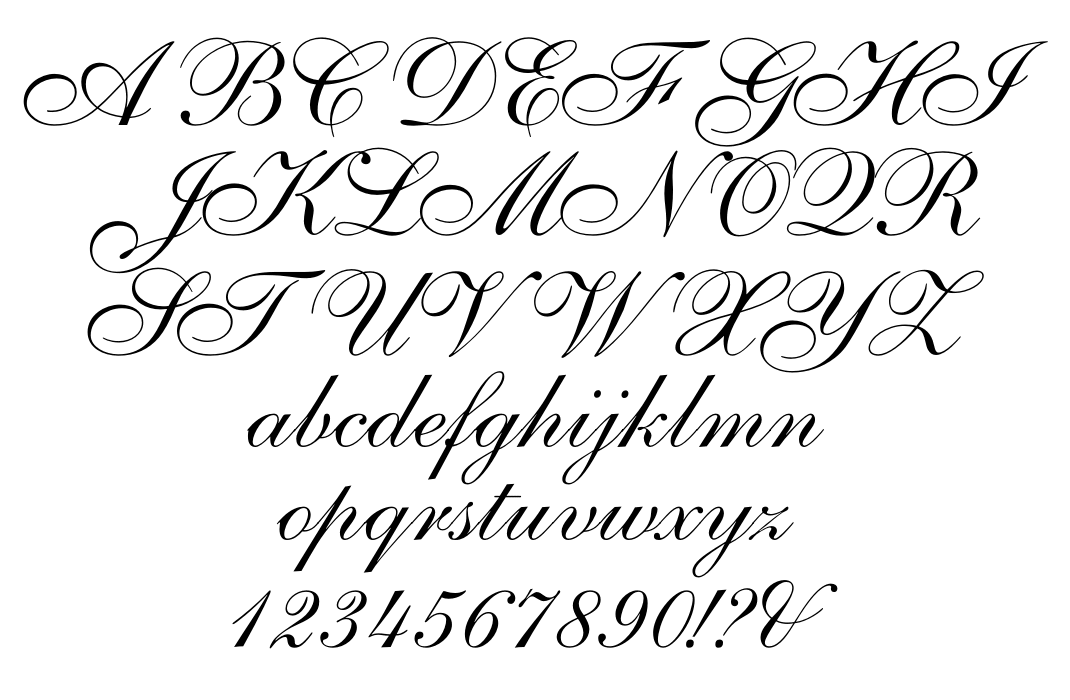 ABCDEFGHI
JKLMNOQR
STUVWXYZ
abcdefghijklmn
opqrstuvwxyz
1234567890!?&